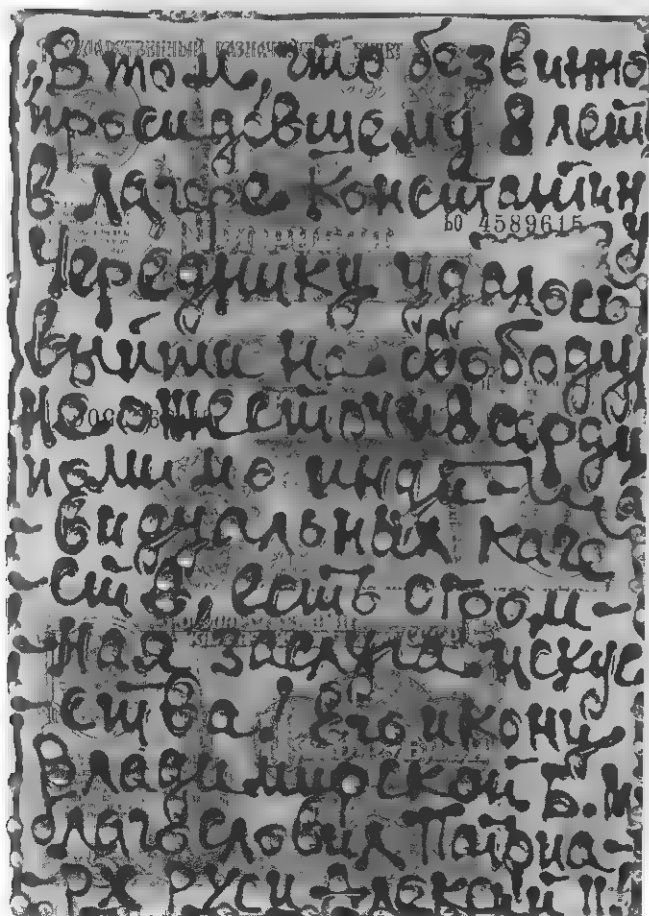 ГОСУДАРСТВЕННЫЙ КАЗНАЧЕЙСКИЙ БИЛЕТ
В том, что безвинно
просидевшему 8 лет
в лагере Константин
у
БО 4589615
Череднику удалось
выйти на свободу,
не ожесточив сердц
помимо инди- ца
- видуальных каче
- ств, есть огром-
- ная заслуга искус
- ства! Его икону
Владимирской Б.М.
благословил Патриа-
- рх РУСИ Алексий II.